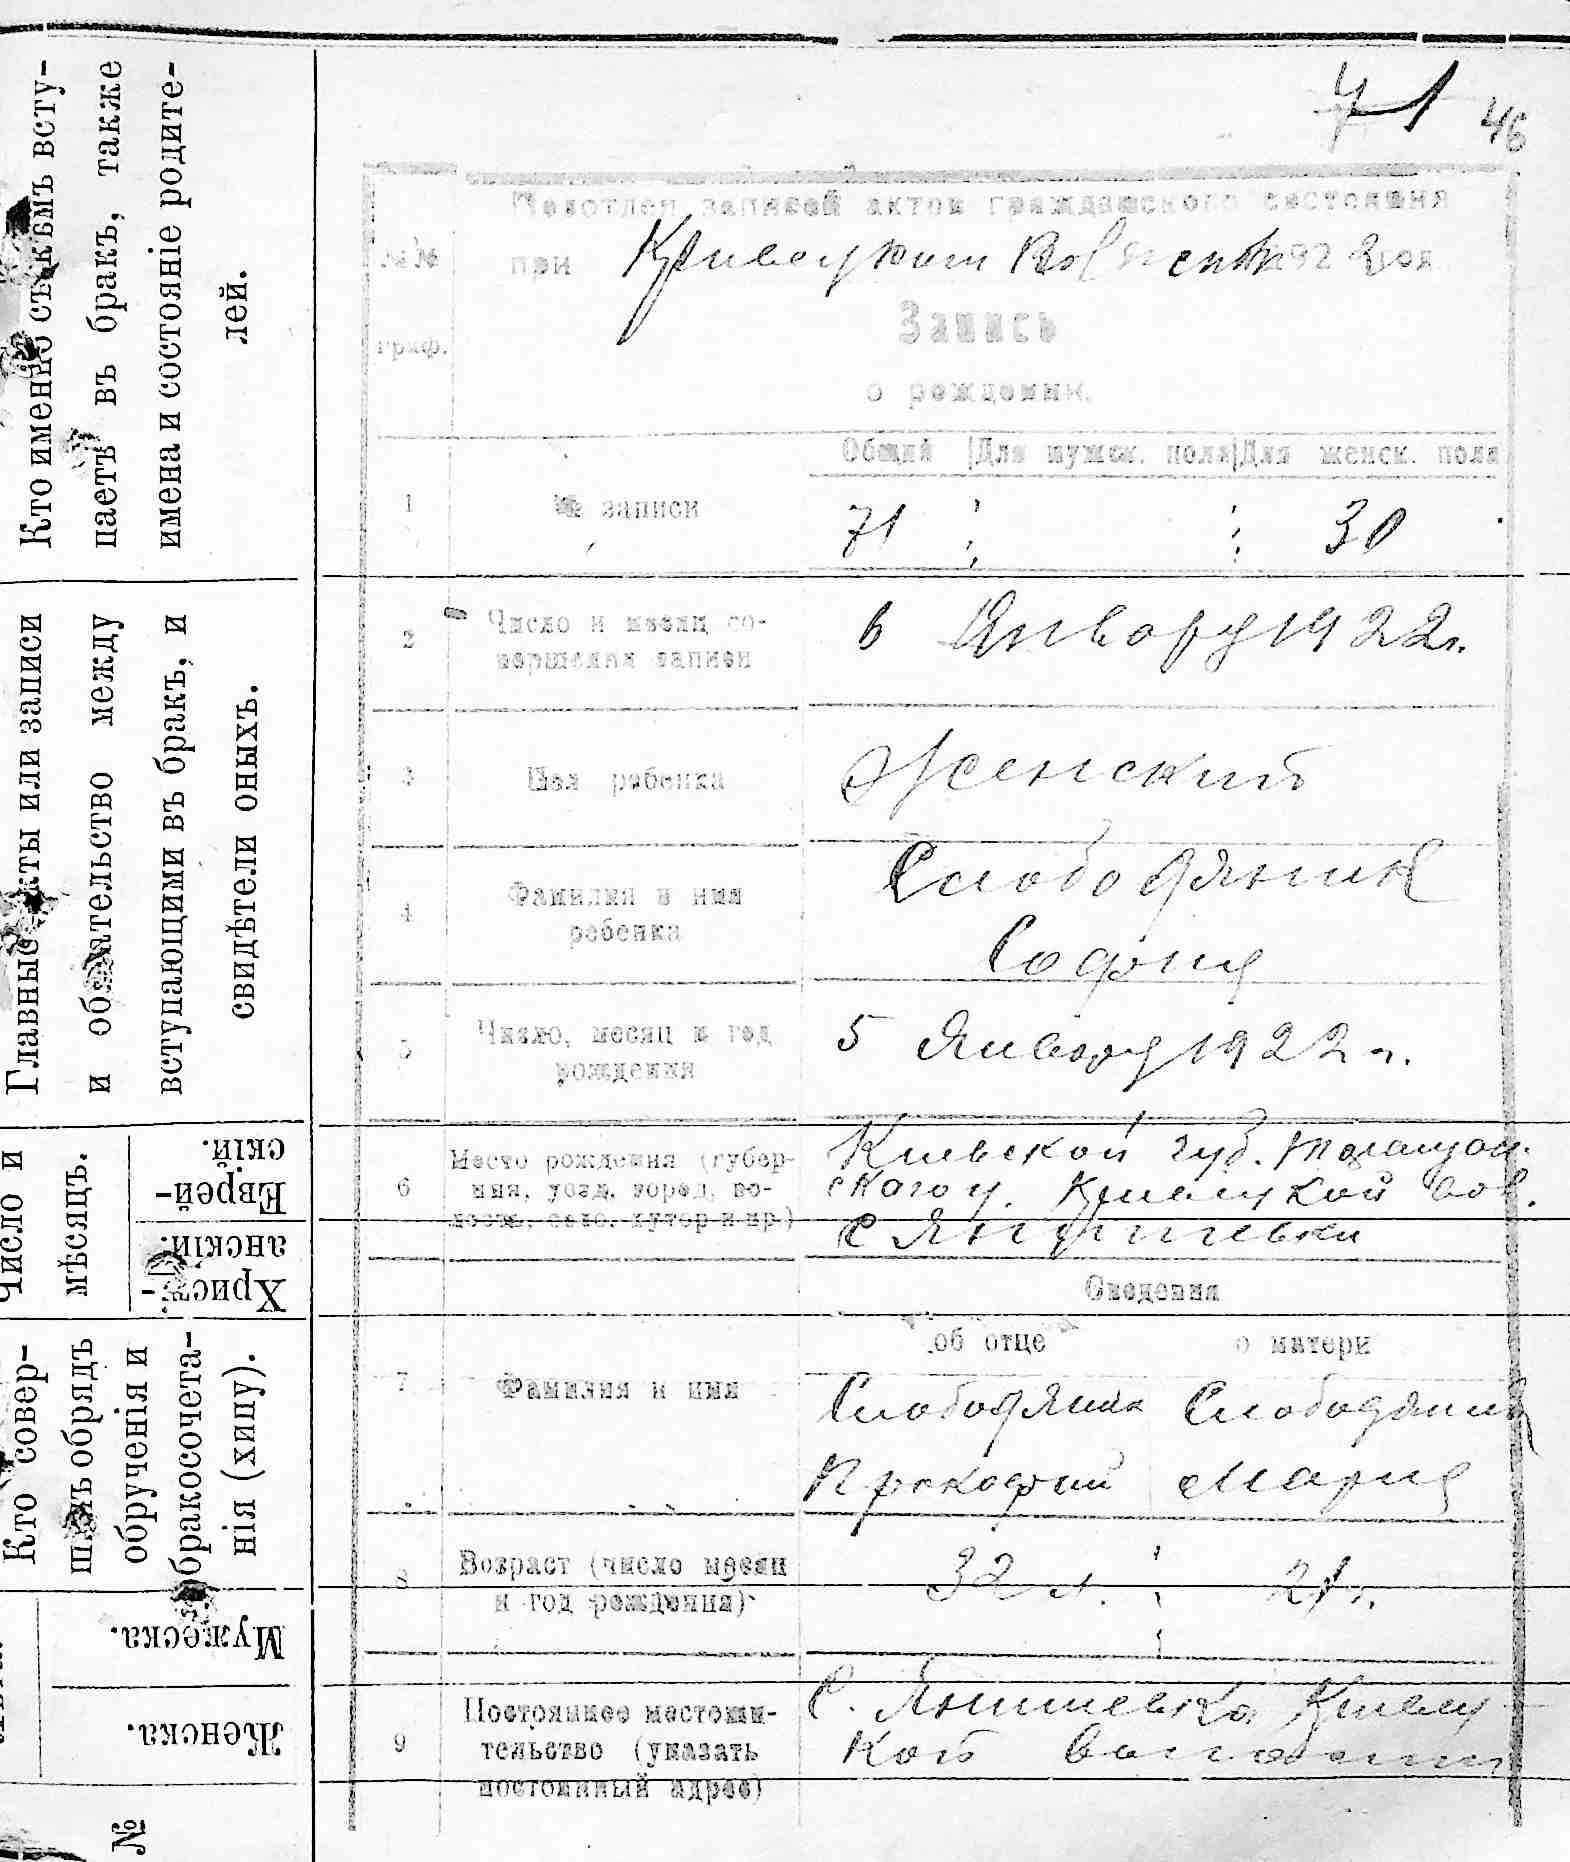 Кто именно съ кѣмъ всту-
паетъ въ бракъ, также
имена и состояніе родите-
лей.
Главные акты или записи
и обязательство между
вступающими въ бракъ, и
свидѣтели оныхъ.
Число и
мѣсяцъ.
Еврей-
скій.
Христі-
анскій.
Кто совер-
шалъ обрядъ
обрученія и
бракосочета-
нія (хипу).
Мужеска.
Женска.
№
71 46
№№
граф.
Подотдел записей актов гражданского состояния
при Кривецком 1922 год
Запись
о рождении.
Общий Для мужск. пола Для женск. пола
1 № записи 71 30
2 Число и месяц со-
вершения записи
6 Январу 1922 г.
3 Пол ребенка Женский
4 Фамилия и имя
ребенка
Слободяник
София
5 Число, месяц и год
рождения
5 Январу 1922 г.
6 Место рождения (губер-
ния, уезд, город, во-
лость, село, хутор и пр)
Киевской губ. Таращан.
ского у. Кривецкой вол.
с
Сведения
об отце о матери
7 Фамилия и имя
Слободяник Слободяник
Прокофий Мария
8 Возраст (число месяц
и год рождения)
32 л. 21 г.
9 Постоянное местожи-
тельство (указать
постоянный адрес)
С. Янишевка Кривец
кой волости